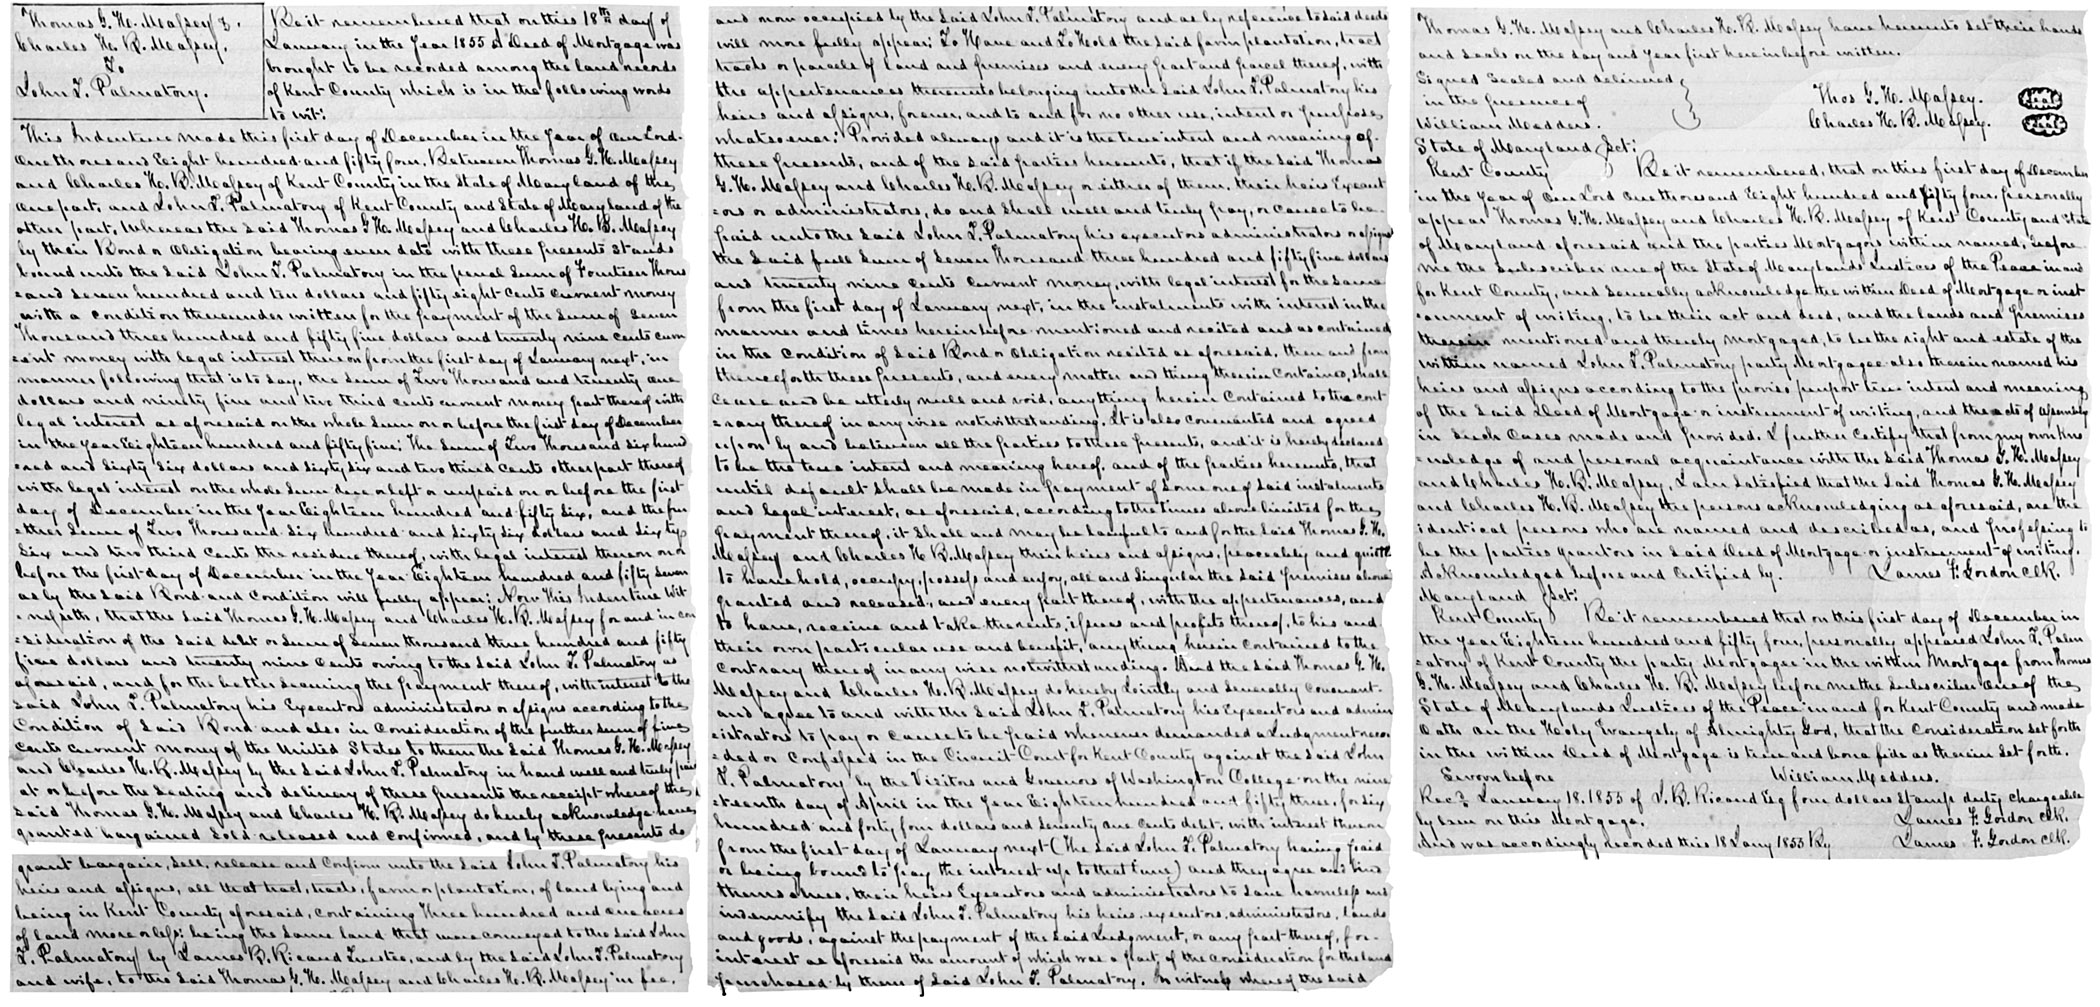 Thomas G. W. Massey &.
Charles H. B. Massey.
To
John T. Palmatory.
Be it remembered that on this 18th day of
January in the Year 1855 a Deed of Mortgage was
brought to be recorded among the land records
of Kent County which is in the following words
to wit:
This Indenture made this first day of December in the Year of our Lord
One thousand Eight hundred and fifty four, Between Thomas G. W. Massey
and Charles H. B. Massey of Kent County in the State of Maryland of the
one part, and John T. Palmatory of Kent County and State of Maryland of the
other part, Whereas the said Thomas G. W. Massey and Charles H. B. Massey
by their Bond or Obligation bearing even date with these presents stands
bound unto the said John T. Palmatory in the penal sum of Fourteen Thous
=and seven hundred and ten dollars and fifty eight cents current money
with a condition thereunder written for the payment of the sum of seven
Thousand three hundred and fifty five dollars and twenty nine cents curr
=ent money with legal interest thereon from the first day of January next, in
manner following that is to say, the sum of Two Thousand and twenty one
dollars and ninety five and two third cents current money part thereof with
legal interest as aforesaid on the whole sum on or before the first day of December
in the year Eighteen hundred and fifty five; The sum of Two Thousand six hund
=red and sixty six dollars and sixty six and two third cents other part thereof
with legal interest on the whole sum due or left or unpaid on or before the first
day of December in the year Eighteen hundred and fifty six, and the fur
=ther sum of Two Thousand six hundred and sixty six dollars and sixty
six and two third cents the residue thereof, with legal interest thereon on or
before the first day of December in the Year Eighteen hundred and fifty seven
as by the said Bond and Condition will fully appear; Now This Indenture Wit
=nesseth, that the said Thomas G. W. Massey and Charles H. B. Massey for and in con
=sideration of the said debt or sum of seven thousand three hundred and fifty
five dollars and twenty nine cents owing to the said John T. Palmatory as
aforesaid, and for the better securing the payment thereof, with interest to the
said John T. Palmatory his Executors administrators or assigns according to the
Condition of said Bond and also in Consideration of the further sum of five
cents current money of the United States to them the said Thomas G. W. Massey
and Charles H. B. Massey by the said John T. Palmatory in hand well and truly paid
at or before the sealing and delivery of these presents the receipt whereof the
said Thomas G. W. Massey and Charles H. B. Massey do hereby acknowledge have
granted bargained sold released and confirmed, and by these presents do
grant bargain, sell, release and confirm unto the said John T. Palmatory his
heirs and assigns, all that tract, tracts, farm or plantation, of land lying and
being in Kent County aforesaid, containing Three hundred and one acres
of land more or less: being the same land that were conveyed to the said John
T. Palmatory by James B. Ricaud Trustee, and by the said John T. Palmatory
and wife, to the said Thomas G. W. Massey and Charles H. B. Massey in fee,
and now occupied by the said John T. Palmatory and as by reference to said deeds
will more fully appear; To Have and To Hold the said farm plantation, tract
tracts or parcels of land and premises and every part and parcel thereof, with
the appertenances thereunto belonging unto the said John T. Palmatory his
heirs and assigns, forever, and to and for no other use, intent or purpose
whatsoever; Provided always and it is the true intent and meaning of
these presents, and of the said parties hereunto, that if the said Thomas
G. W. Massey and Charles H. B. Massey or either of them, their heirs Execut
=ors or administrators, do and shall well and truly pay, or cause to be
paid unto the said John T. Palmatory his executors administrators or assigns
the said full sum of seven Thousand three hundred and fifty five dollars
and twenty nine cents current money, with legal interest for the same
from the first day of January next, in the instalments with interest in the
manner and times herein before mentioned and recited and as contained
in the condition of said Bond or Obligation recited as aforesaid, then and from
thenceforth these presents, and every matter and thing therein contained, shall
cease and be utterly null and void, anything herein contained to the cont
=rary thereof in any wise notwithstanding. It is also covenanted and agreed
upon by and between all the parties to these presents, and it is hereby declared
to be the true intent and meaning hereof, and of the parties hereunto, that
until default shall be made in payment of some one of said instalments
and legal interest, as aforesaid, according to the times above limited for the
payment thereof, it shall and may be lawful to and for the said Thomas G. W.
Massey and Charles H. B. Massey their heirs and assigns, peaceably and quietly
to have hold, occupy, possess and enjoy, all and singular the said premises above
granted and released, and every part thereof, with the appertenances, and
to have, receive and take the rents, issues and profits thereof, to his and
their own particular use and benefit, anything herein contained to the
contrary thereof in any wise notwithstanding. And the said Thomas G. W.
Massey and Charles H. B. Massey do hereby jointly and severally covenant
and agree to and with the said John T. Palmatory his Executors and admin
=istrators to pay or cause to be paid whenever demanded a Judgment recor
=ded or confessed in the Circuit Court for Kent County against the said John
T. Palmatory by the Visitors and Governors of Washington College on the nine
=teenth day of April in the Year Eighteen hundred and fifty three, for six
hundred and forty four dollars and seventy one cents debt, with interest thereon
from the first day of January next (The said John T. Palmatory having paid
or being bound to pay the interest up to that time) and they agree and bind
themselves, their heirs Executors and administrators to save harmless and
indemnify the said John T. Palmatory his heirs, executors, administrators, lands
and goods, against the payment of the said Judgment, or any part thereof, for
interest as aforesaid the amount of which was a part of the consideration for the land
purchased by them of said John T. Palmatory. In witness whereof the said
Thomas G. W. Massey and Charles H. B. Massey have hereunto set their hands
and seals on the day and Year first herein before written.
Signed Sealed and delivered
in the presence of
William Medders.
Thos G. W. Massey. Seal
Charles H. B. Massey. Seal
State of Maryland Sct:
Kent County Be it remembered, that on this first day of December
in the Year of Our Lord one thousand Eight hundred and fifty four, personally
appear Thomas G. W. Massey and Charles H. B. Massey of Kent County and State
of Maryland aforesaid and the parties Mortgagors within named, before
me the subscriber one of the State of Marylands Justices of the Peace in and
for Kent County, and severally acknowledge the within Deed of Mortgage or inst
=rument of writing, to be their act and deed, and the lands and premises
therein mentioned and thereby mortgaged, to be the right and estate of the
within named John T. Palmatory party Mortgagee also therein named his
heirs and assigns according to the proviso purport true intent and meaning
of the said Deed of Mortgage or instrument of writing, and the acts of assembly
in such cases made and provided. I further certify that from my own kno
=wledge of and personal acquaintance with the said Thomas G. W. Massey
and Charles H. B. Massey, I am satisfied that the said Thomas G. W. Massey
and Charles H. B. Massey the persons acknowledging as aforesaid, are the
identical persons who are named and described as, and professing to
be the parties grantors in said Deed of Mortgage or instrument of writing.
Acknowledged before and Certified by. James F. Gordon Clk.
Maryland Sct:
Kent County Be it remembered that on this first day of December in
the year Eighteen hundred and fifty four, personally appeared John T. Palm
=atory of Kent County the party Mortgagee in the within Mortgage from Thomas
G. W. Massey and Charles H. B. Massey before me the subscriber One of the
State of Marylands Justices of the Peace in and for Kent County and made
Oath on the Holy Evangely of Almighty God, that the Consideration set forth
in the within Deed of Mortgage is true and bona fide as therein set forth.
Sworn before William Medders.
Recd January 18, 1855 of J. B. Ricaud Esq four dollars Stamp duty chargeable
by law on this Mortgage. James F. Gordon Clk.
And was accordingly recorded this 18 Jany 1855 By James F. Gordon Clk.